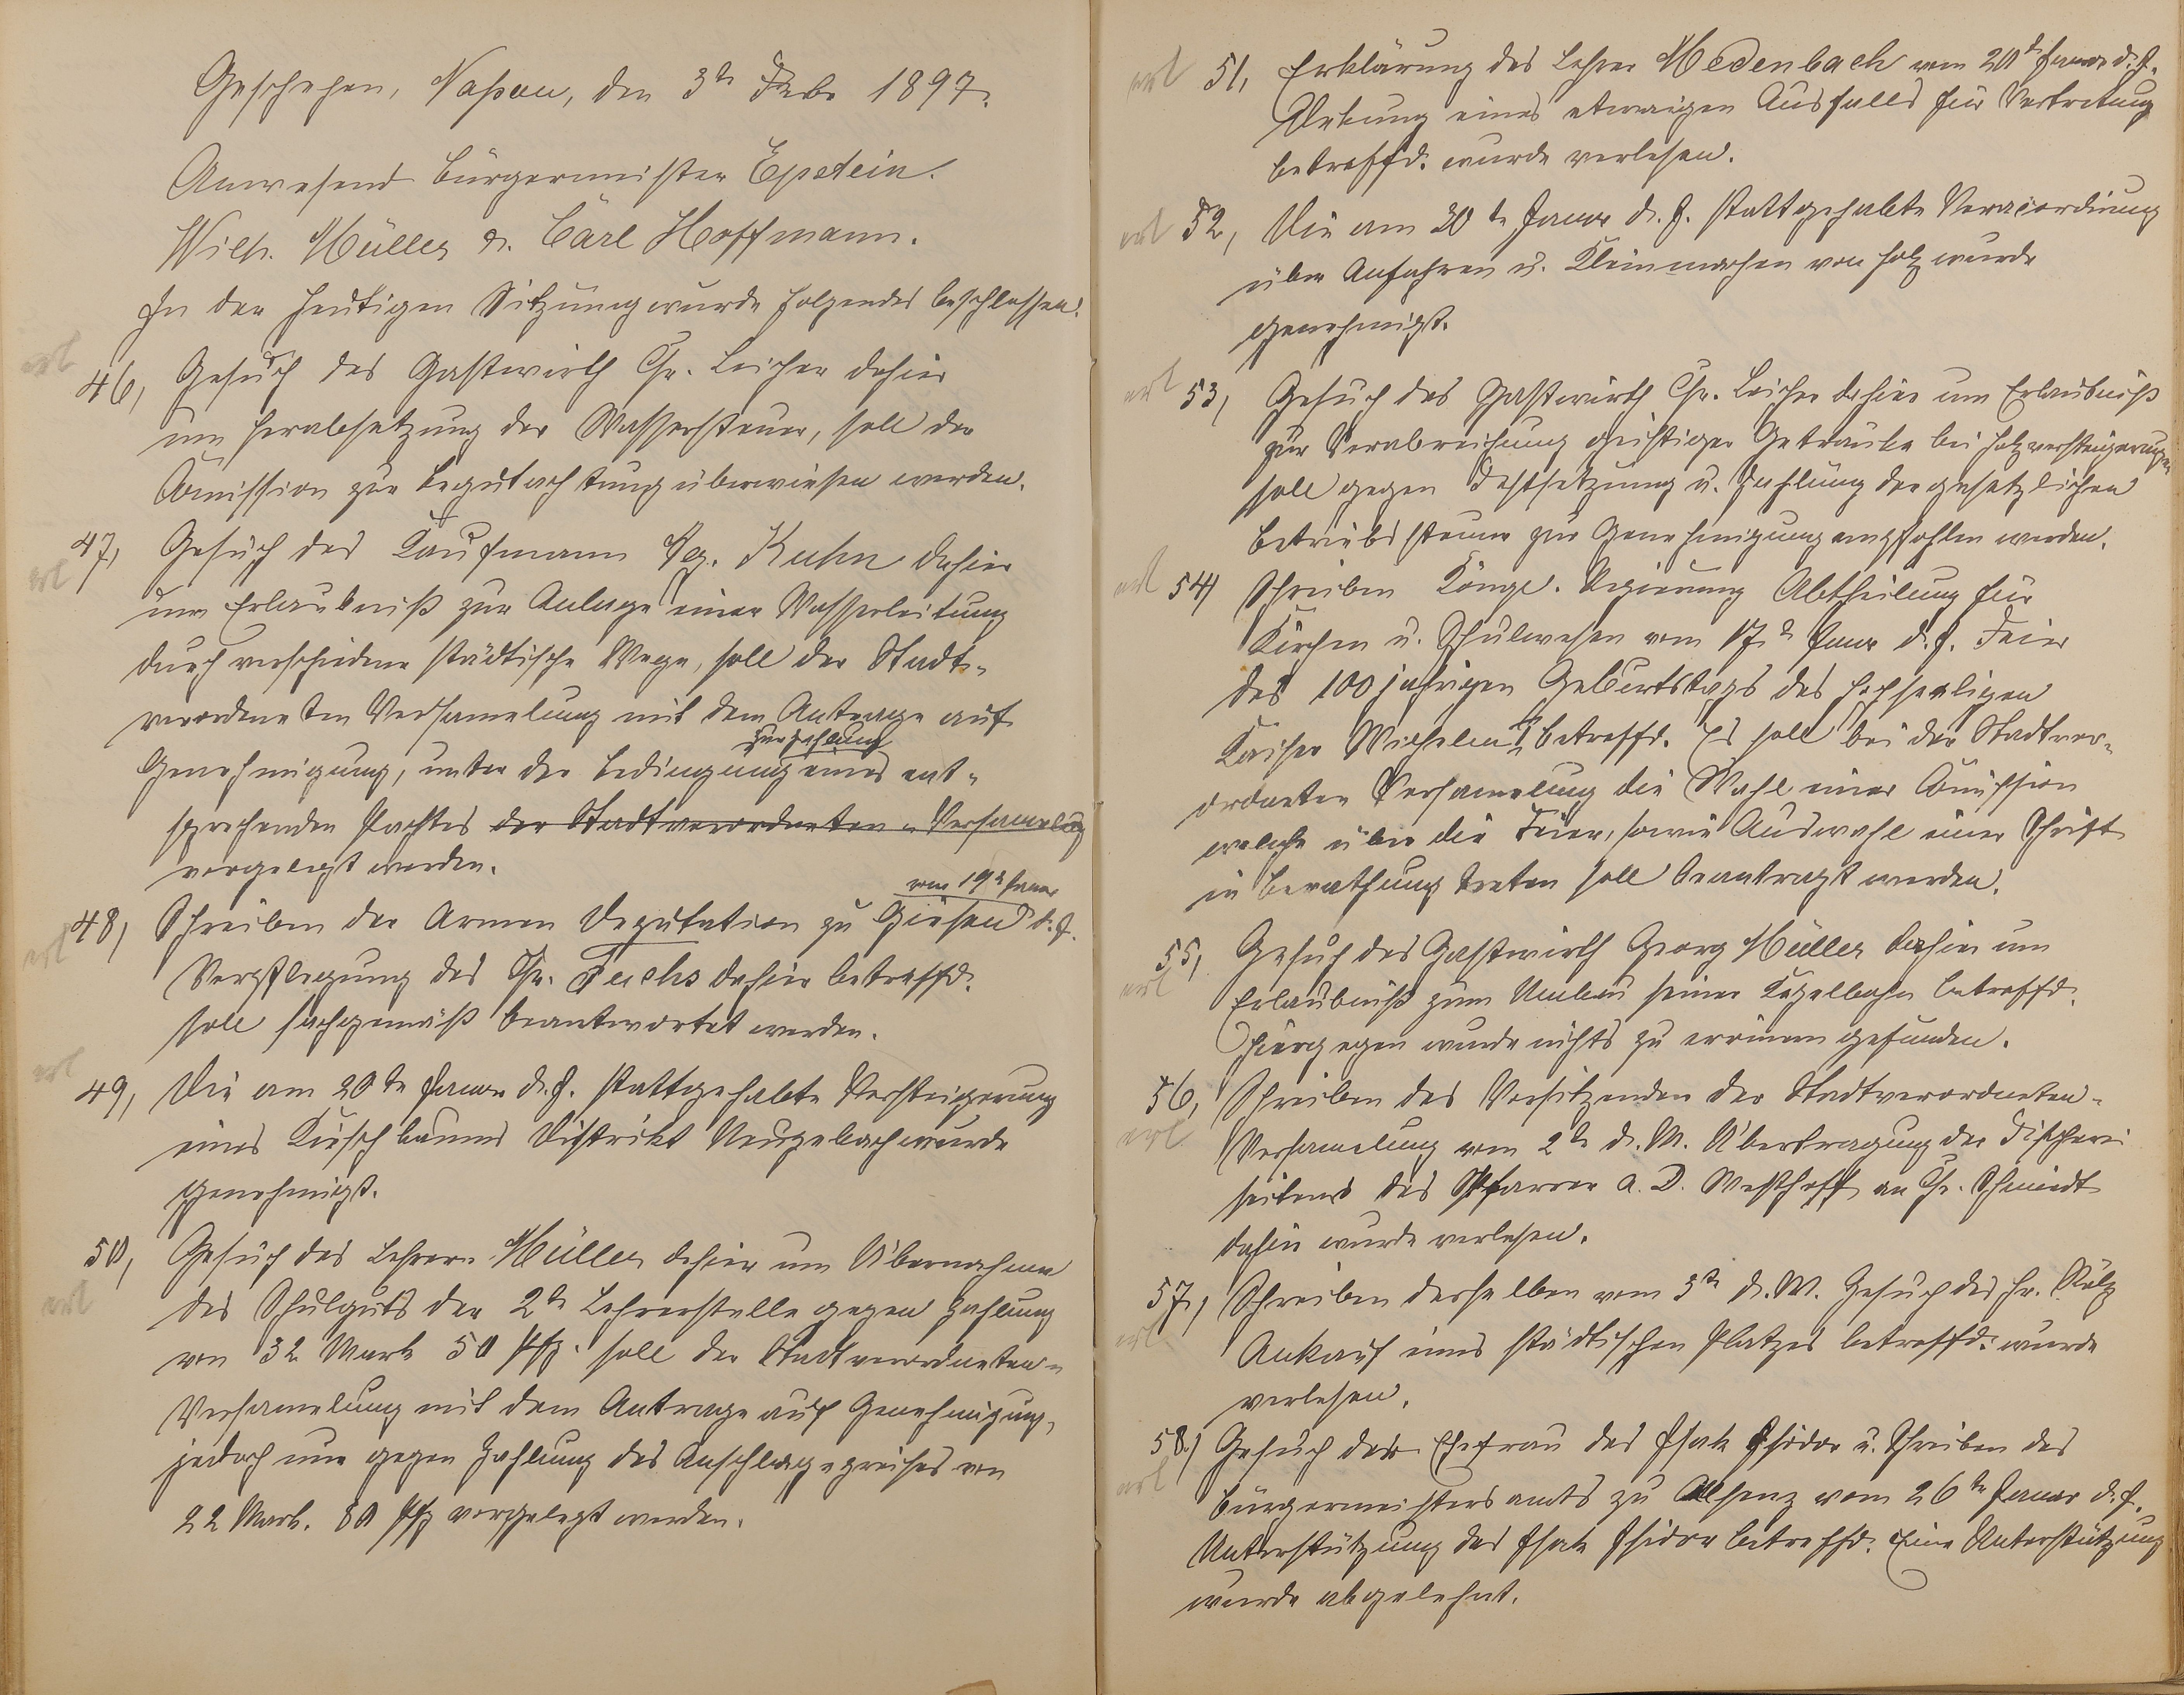 Geschehen, Nassau, den 3te Febr 1897.
Anwesend Bürgermeister Epstein.
Wilh. Müller u. Carl Hoffmann.
In der heutigen Sitzung wurde folgendes beschlossen:
erl
46, Gesuch des Gastwirth Chr. Leicher dahier
um Herabsetzung der Wassersteuer, soll der
Comission zur Begutachtung überwiesen werden.
47, Gesuch des Kaufmann Kuhn dahier
erl
um Erlaubniß zur Anlage einer Wasserleitung
durch verschiedene städtische Wege, soll der Stadt-
verordneten Versamelung mit dem Antrage auf
zur Zahlung
Genehmigung, unter der Bedingung eines ent-
sprechenden Pachtes der Stadtverordneten-Versamelung
vorgelegt werden.
vom 19te Januar
48, Schreiben der Armen Deputation zu Giesen d. J.
erl
Verpflegung des Chr. Fuchs dahier betreffd.
soll sachgemäß beantwortet werden.
erl
49, Die am 20te Januar d. J. stattgehabte Versteigerung
eines Kirschbaums Distrikt Neuzebach wurde
genehmigt.
50, Gesuch des Lehrers Müller dahier um Übernahme
erl
des Schulguts der 2te Lehrerstelle gegen Zahlung
von 32 Mark 50 Pfg. soll der Stadtverordneten-
Versamelung mit dem Antrage auf Genehmigung,
jedoch nur gegen Zahlung des Anschlagepreises von
22 Mark. 80 Pfg vorgelegt werden.
erl 51, Erklärung des Lehrer Medenbach vom 20te Januar d. J.
Dekung eines etwaigen Ausfalls für Vertretung
betreffd. wurde verlesen.
erl 52, Die am 30te Januar d. J. stattgehabte Veracordirung
über Anfahren u. Kleinmachen von Holz wurde
genehmigt.
erl 53, Gesuch des Gastwirth Chr. Leicher dahier um Erlaubniß
zur Verabreichung geistiger Getränke bei Holzversteigerungen
soll gegen Festsetzung u. Zahlung der gesetzlichen
Betriebssteuer zur Genehmigung empfohlen werden.
erl 54, Schreiben Köngl. Regierung Abtheilung für
Kirchen u. Schulwesen vom 17te Januar d. J. Feier
des 100jährigen Geburtstags des hochseeligen
Kaiser Wilhelm I betreffd. Es soll bei der Stadtver-
ordneten Versamelung die Wahl einer Comission
welche über die Feier, sowie Auswahl einer Schrift
in Berathung treten soll beantragt werden.
55, Gesuch des Gastwirth Georg Müller dahier um
erl
Erlaubniß zum Umbau seiner Kegelbahn betreffd.
Hiergegen wurde nichts zu erinnern gefunden.
56, Schreiben des Vorsitzenden der Stadtverordneten-
erl
Versamelung vom 2te d. M. Übertragung der Fischerei
seitens des Pfarrer a. D. Westhoff an Chr. Schmidt
dahier wurde verlesen.
57, Schreiben desselben vom 3te d. M. Gesuch des
erl
Ankauf eines städtischen Platzes betreffd. wurde
verlesen.
58.) Gesuch der Ehefrau des Isak Isidor u. Schreiben des
erl
Bürgermeistersamts zu Alsenz vom 26te Januar d. J.
Unterstützung des Isak Isidor betreffd. Eine Unterstützung
wurde abgelehnt.